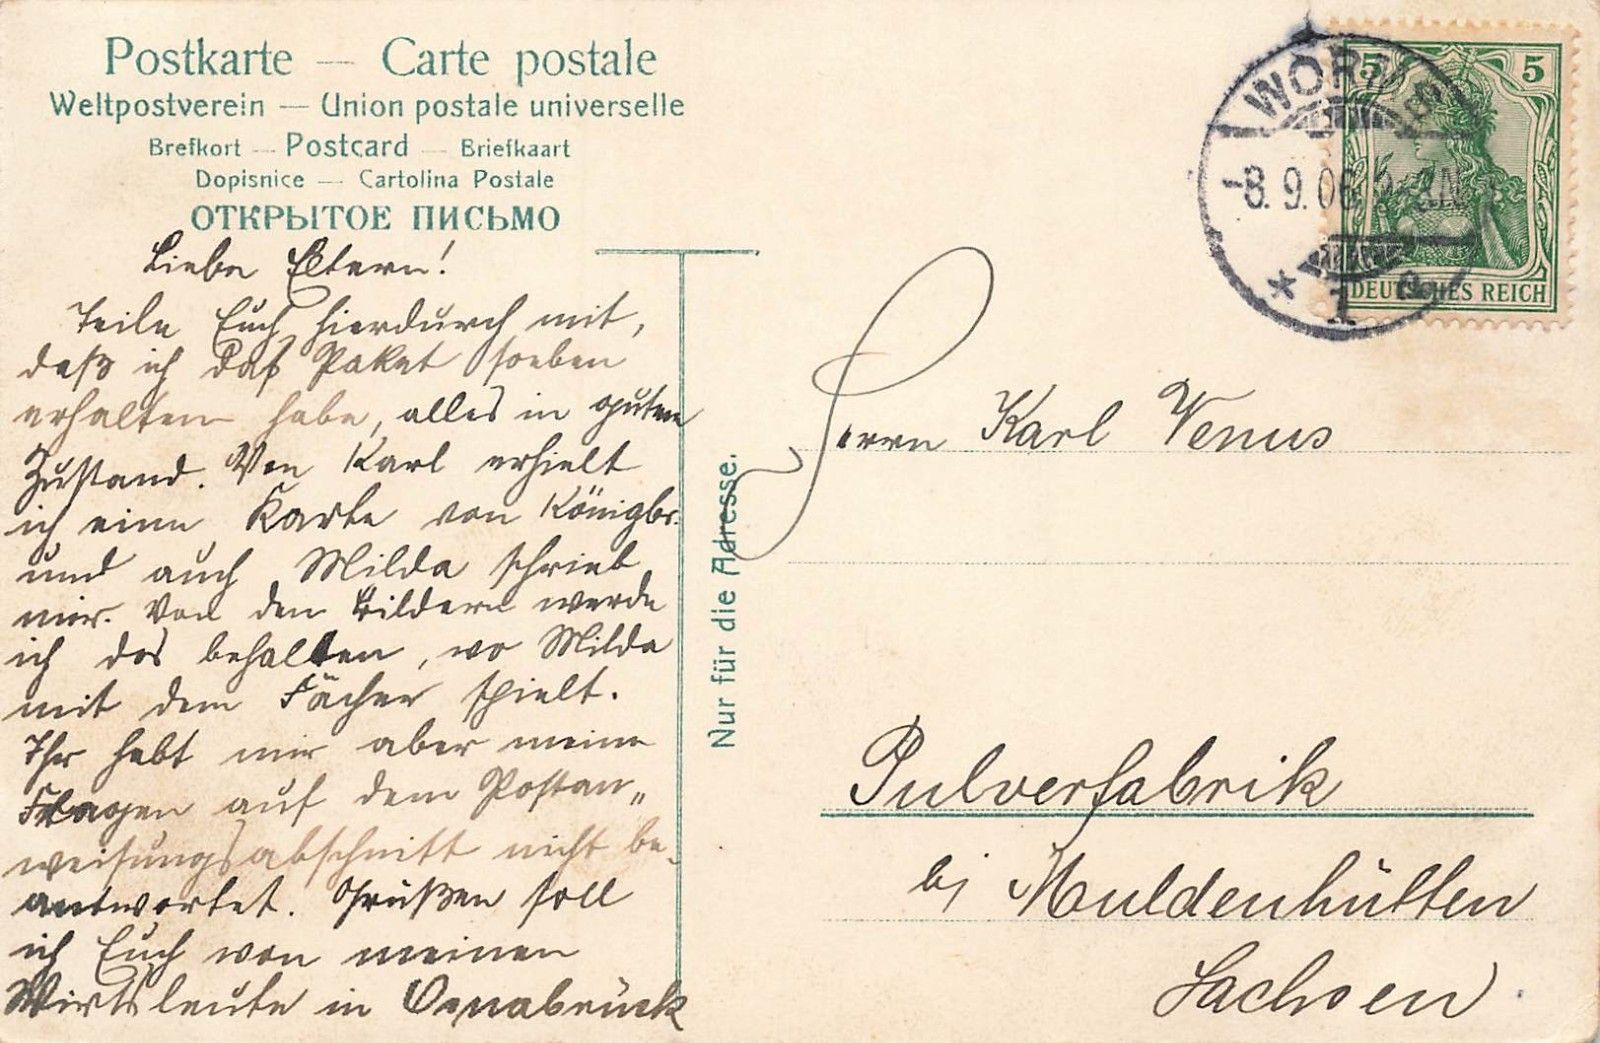 Postkarte — Carte postale
Weltpostverein — Union postale universelle
Brefkort — Postcard — Briefkaart
Dopisnice — Cartolina Postale
ОТКРЫТОЕ ПИСЬМО
Liebe Eltern!
Teile Euch hierdurch mit,
daß ich das Paket soeben
erhalten habe, alles in guten
Zustand. Von Karl erhielt
ich eine Karte von Königbr.
und auch Milda schrieb
mir. Von den Bildern werde
ich das behalten, wo Milda
mit dem Fächer spielt.
Ihr habt mir aber meine
Fragen auf dem Postan„
weisungsabschnitt nicht be-
antwortet. Grüßen soll
ich Euch von meinen
Wirtsleute in Osnabrück
Nur für die Adresse.
WORMS
-8.9.06.
* 1
5 5
DEUTSCHES REICH
Herrn Karl Venus
Pulverfabrik
bj Muldenhütten
Sachsen.